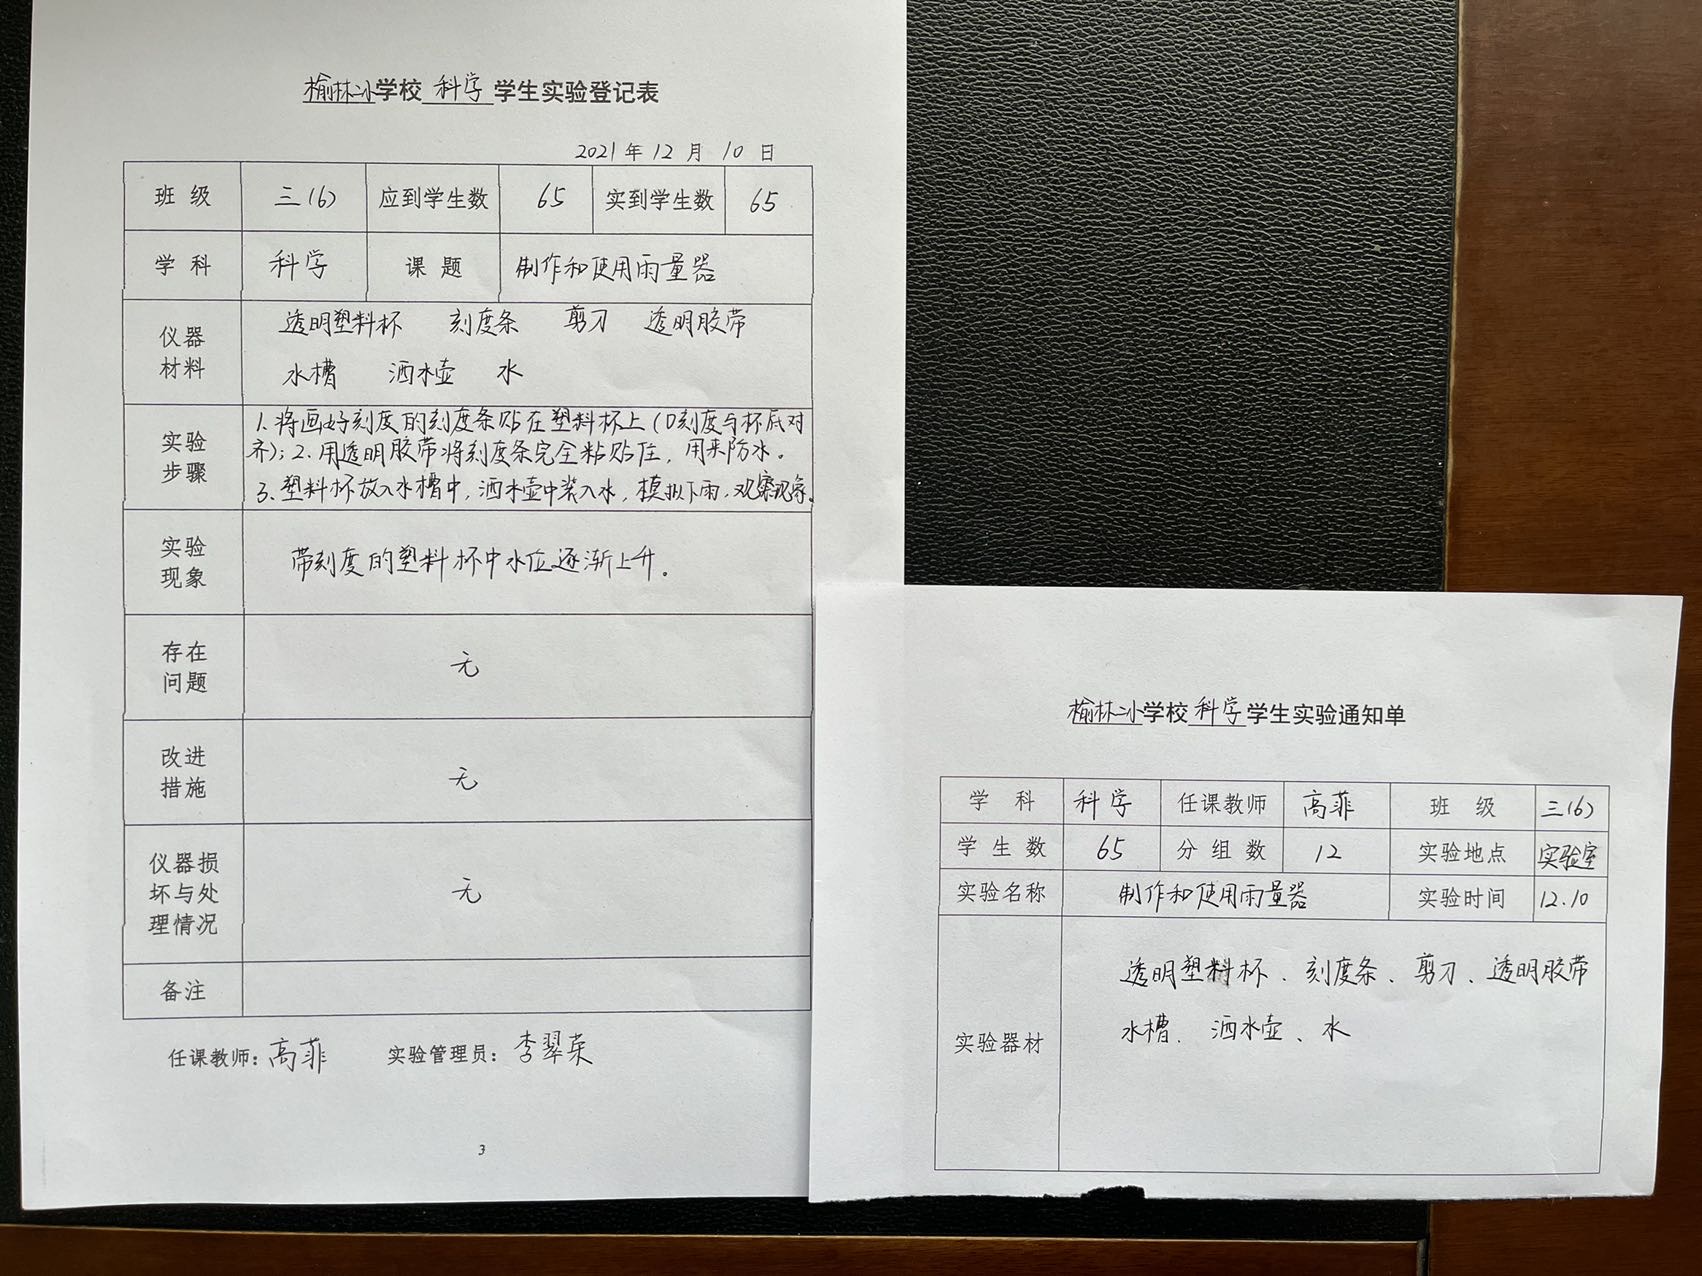 榆林二小学校 科学 学生实验登记表
2021年 12 月 10 日
班 级 三(6) 应到学生数 65 实到学生数 65
学 科 科学 课 题 制作和使用雨量器
仪器
材料
透明塑料杯 刻度条 剪刀 透明胶带
水槽 洒水壶 水
实验
步骤
1.将画好刻度的刻度条贴在塑料杯上(0刻度与杯底对
齐);2.用透明胶带将刻度条完全粘贴住,用来防水。
3.塑料杯放入水槽中,洒水壶中装入水,模拟下雨,观察现象。
实验
现象
带刻度的塑料杯中水位逐渐上升。
存在
问题
无
改进
措施
无
仪器损
坏与处
理情况
无
备注
任课教师:高菲 实验管理员:李翠荣
3
榆林二小学校 科学 学生实验通知单
学 科 科学 任课教师 高菲 班 级 三(6)
学 生 数 65 分 组 数 12 实验地点 实验室
实验名称 制作和使用雨量器 实验时间 12.10
实验器材
透明塑料杯、刻度条、剪刀、透明胶带
水槽、洒水壶、水